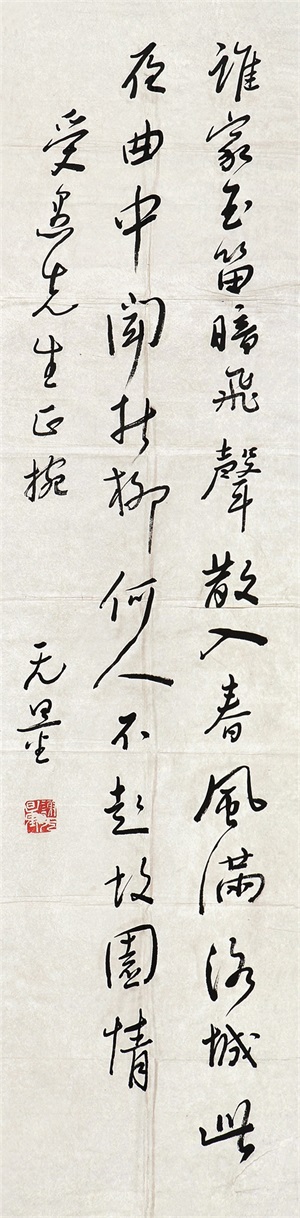 誰家玉笛暗飛聲散入春風滿洛城此
夜曲中聞折柳何人不起故園情
受愚先生正捥
无量